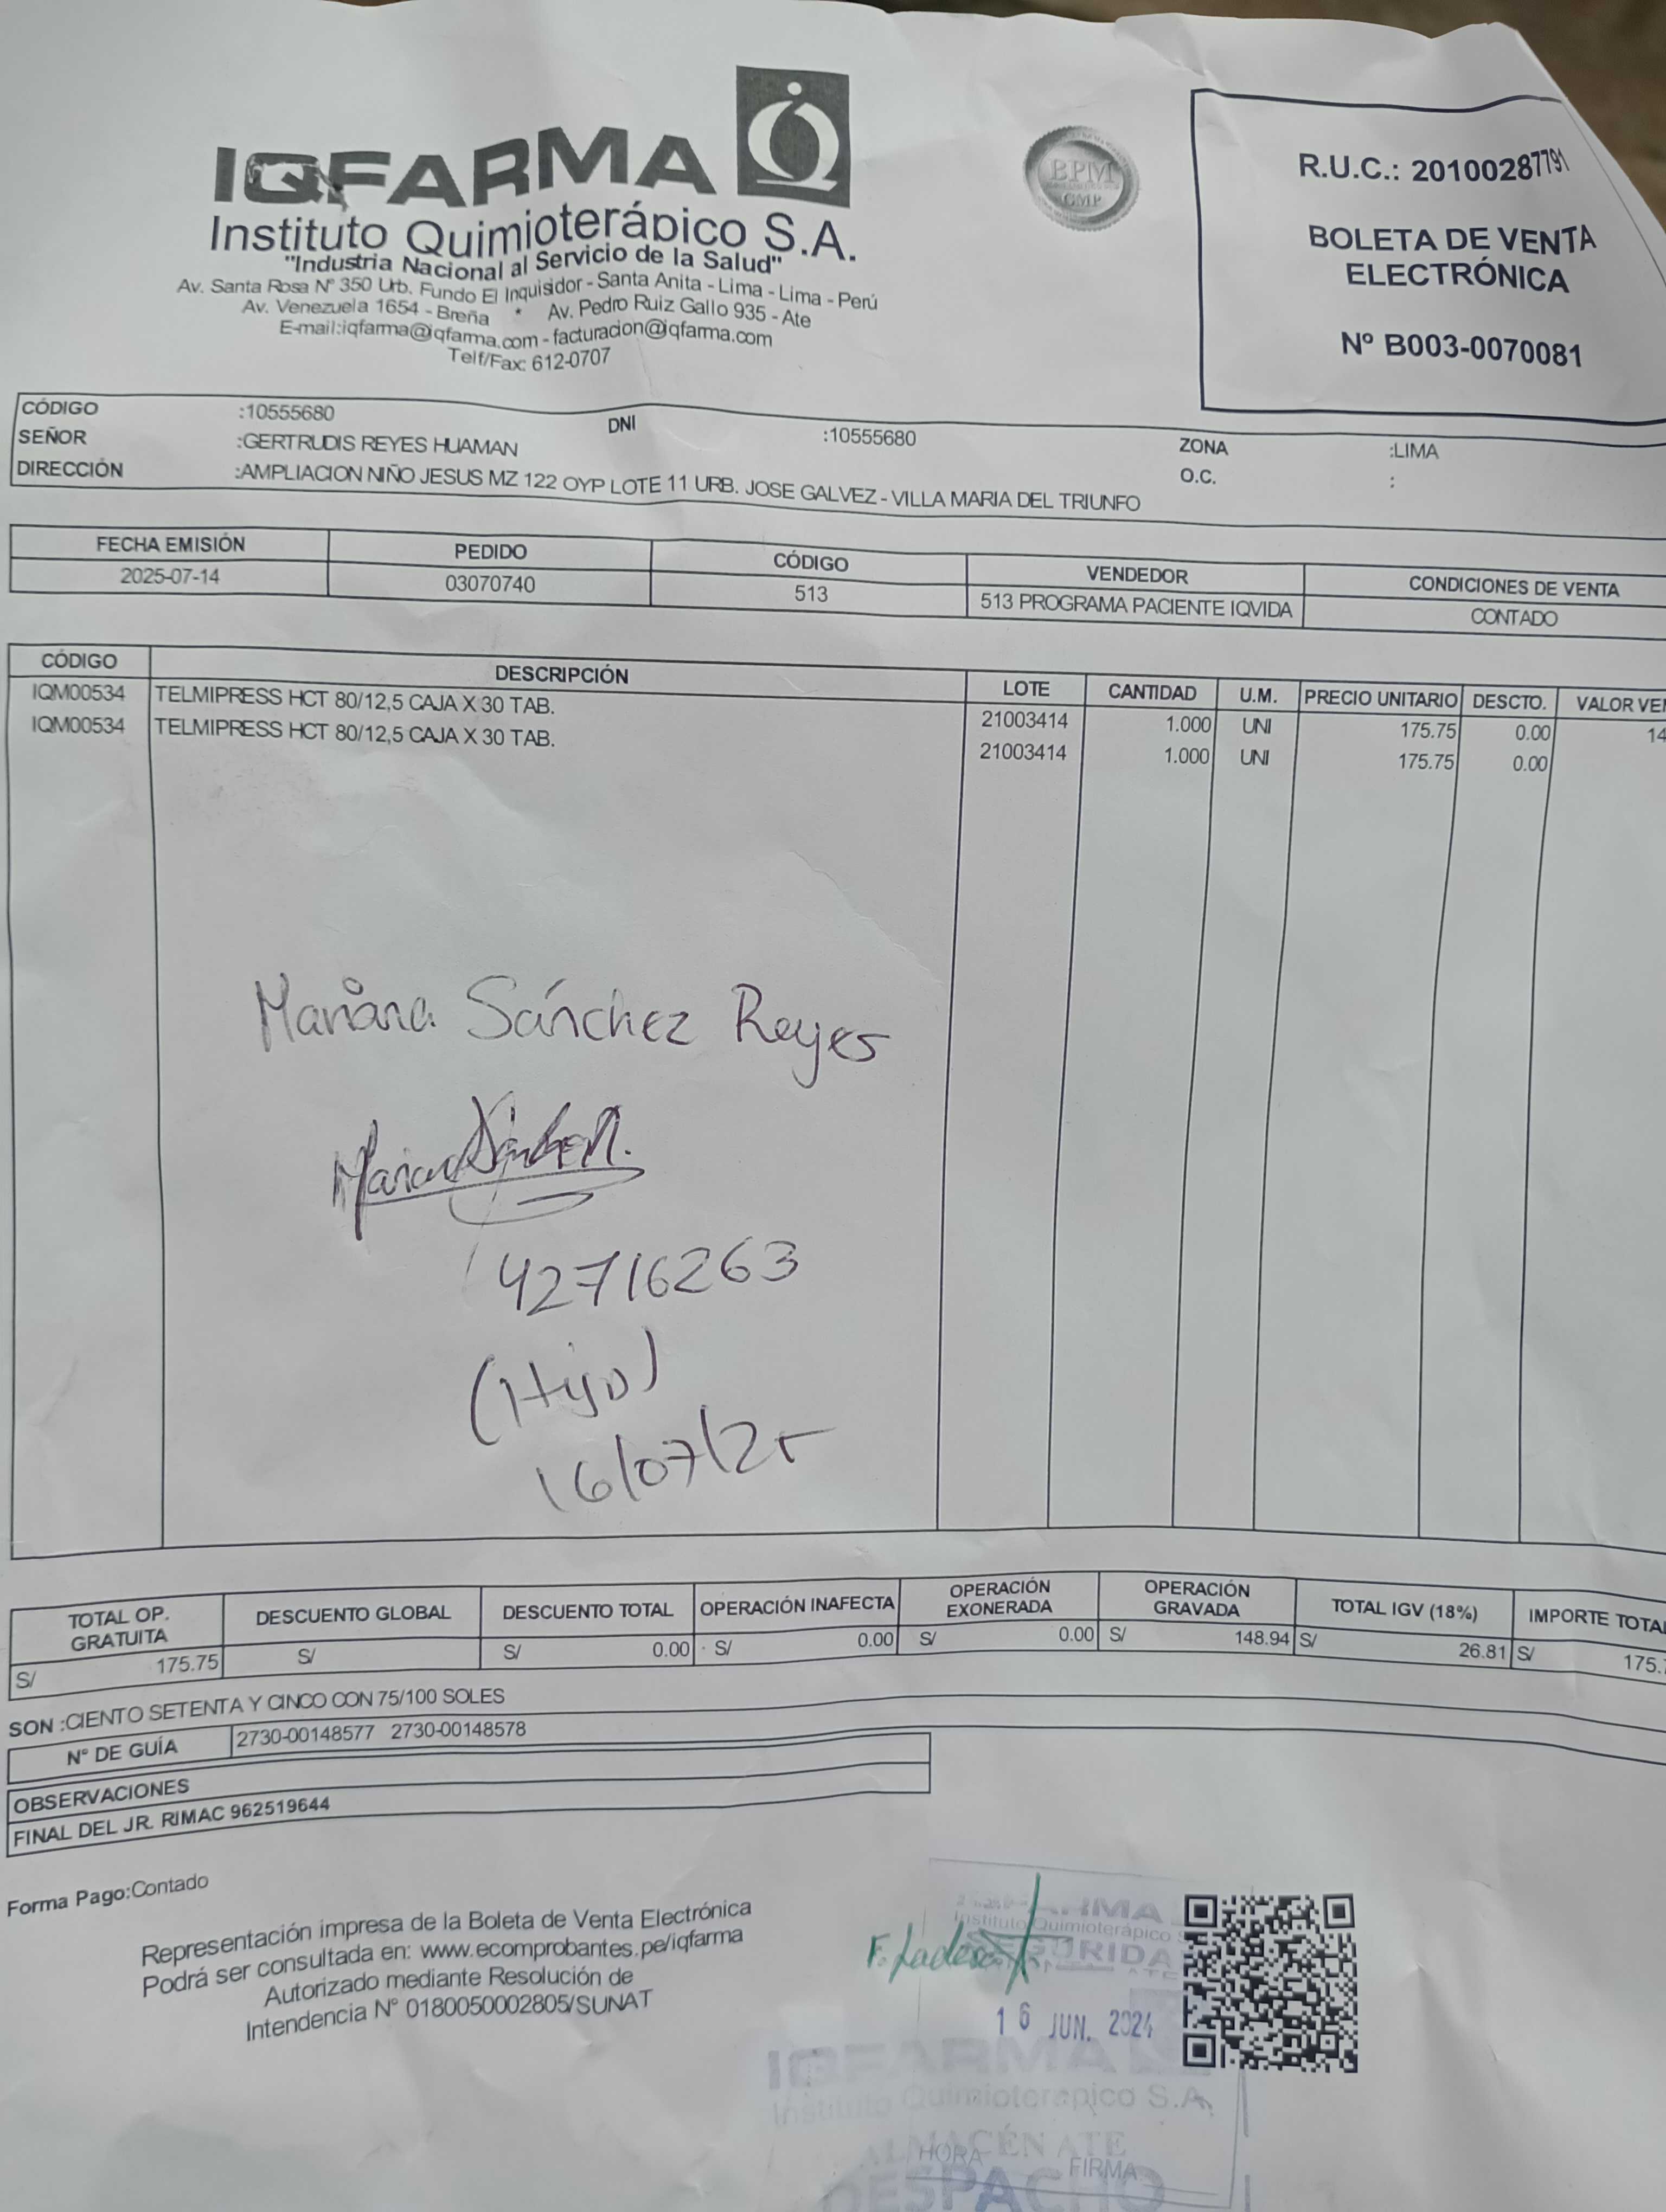 IQFARMA
Instituto Quimioterápico S.A.
"Industria Nacional al Servicio de la Salud"
Av. Santa Rosa N° 350 Urb. Fundo El Inquisidor - Santa Anita - Lima - Lima - Perú
Av. Venezuela 1654 - Breña * Av. Pedro Ruiz Gallo 935 - Ate
E-mail:iqfarma@iqfarma.com - facturacion@iqfarma.com
Telf/Fax: 612-0707
BPM
GMP
R.U.C.: 20100287791
BOLETA DE VENTA
ELECTRÓNICA
Nº B003-0070081
CÓDIGO :10555680 DNI :10555680 ZONA :LIMA
SEÑOR :GERTRUDIS REYES HUAMAN O.C. :
DIRECCIÓN :AMPLIACION NIÑO JESUS MZ 122 OYP LOTE 11 URB. JOSE GALVEZ - VILLA MARIA DEL TRIUNFO
FECHA EMISIÓN PEDIDO CÓDIGO VENDEDOR CONDICIONES DE VENTA
2025-07-14 03070740 513 513 PROGRAMA PACIENTE IQVIDA CONTADO
CÓDIGO DESCRIPCIÓN LOTE CANTIDAD U.M. PRECIO UNITARIO DESCTO. VALOR VE
IQM00534 TELMIPRESS HCT 80/12,5 CAJA X 30 TAB. 21003414 1.000 UNI 175.75 0.00 14
IQM00534 TELMIPRESS HCT 80/12,5 CAJA X 30 TAB. 21003414 1.000 UNI 175.75 0.00
Mariana Sánchez Reyes
42716263
(Hijo)
16/07/25
TOTAL OP. GRATUITA DESCUENTO GLOBAL DESCUENTO TOTAL OPERACIÓN INAFECTA OPERACIÓN EXONERADA OPERACIÓN GRAVADA TOTAL IGV (18%) IMPORTE TOTA
S/ 175.75 S/ S/ 0.00 S/ 0.00 S/ 0.00 S/ 148.94 S/ 26.81 S/ 175.
SON :CIENTO SETENTA Y CINCO CON 75/100 SOLES
N° DE GUÍA 2730-00148577 2730-00148578
OBSERVACIONES
FINAL DEL JR. RIMAC 962519644
Forma Pago:Contado
Representación impresa de la Boleta de Venta Electrónica
Podrá ser consultada en: www.ecomprobantes.pe/iqfarma
Autorizado mediante Resolución de
Intendencia N° 0180050002805/SUNAT
Instituto Quimioterápico
16 JUN. 2024
IQFARMA
Instituto Quimioterapico S.A.
ALMACÉN ATE
HORA FIRMA
DESPACHO